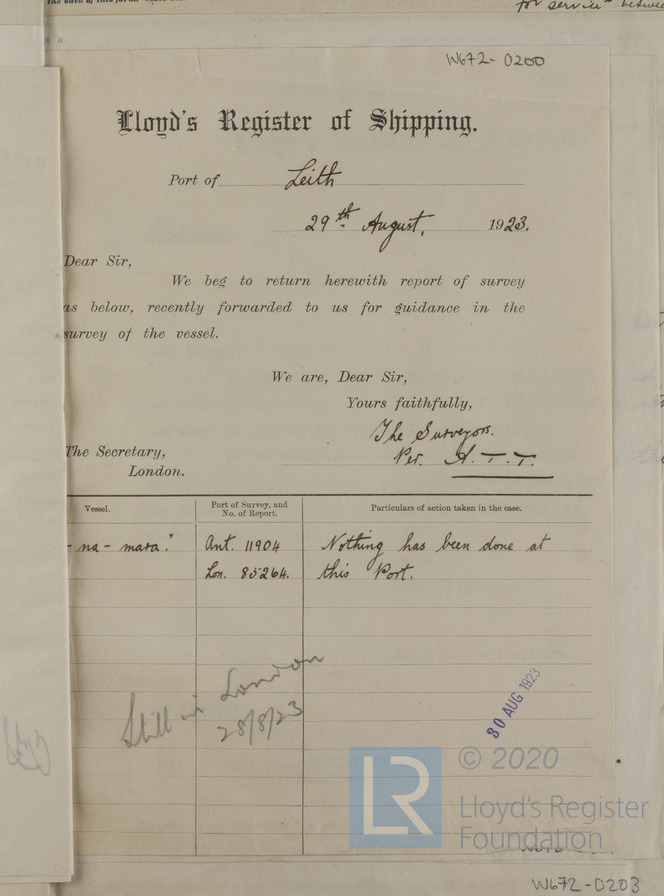 the back of this form
for service betwee
W672-0200
Lloyd's Register of Shipping.
Port of Leith
29th August, 1923.
Dear Sir,
We beg to return herewith report of survey
as below, recently forwarded to us for guidance in the
survey of the vessel.
We are, Dear Sir,
Yours faithfully,
The Surveyors.
Per. A.T.T.
The Secretary,
London.
Vessel. Port of Survey, and No. of Report. Particulars of action taken in the case.
-na-mara." Ant. 11904 Nothing has been done at
Lon. 85264. this Port.
Still in London
28/8/23
30 AUG 1923
LR
© 2020
Lloyd's Register
Foundation
W672-0203